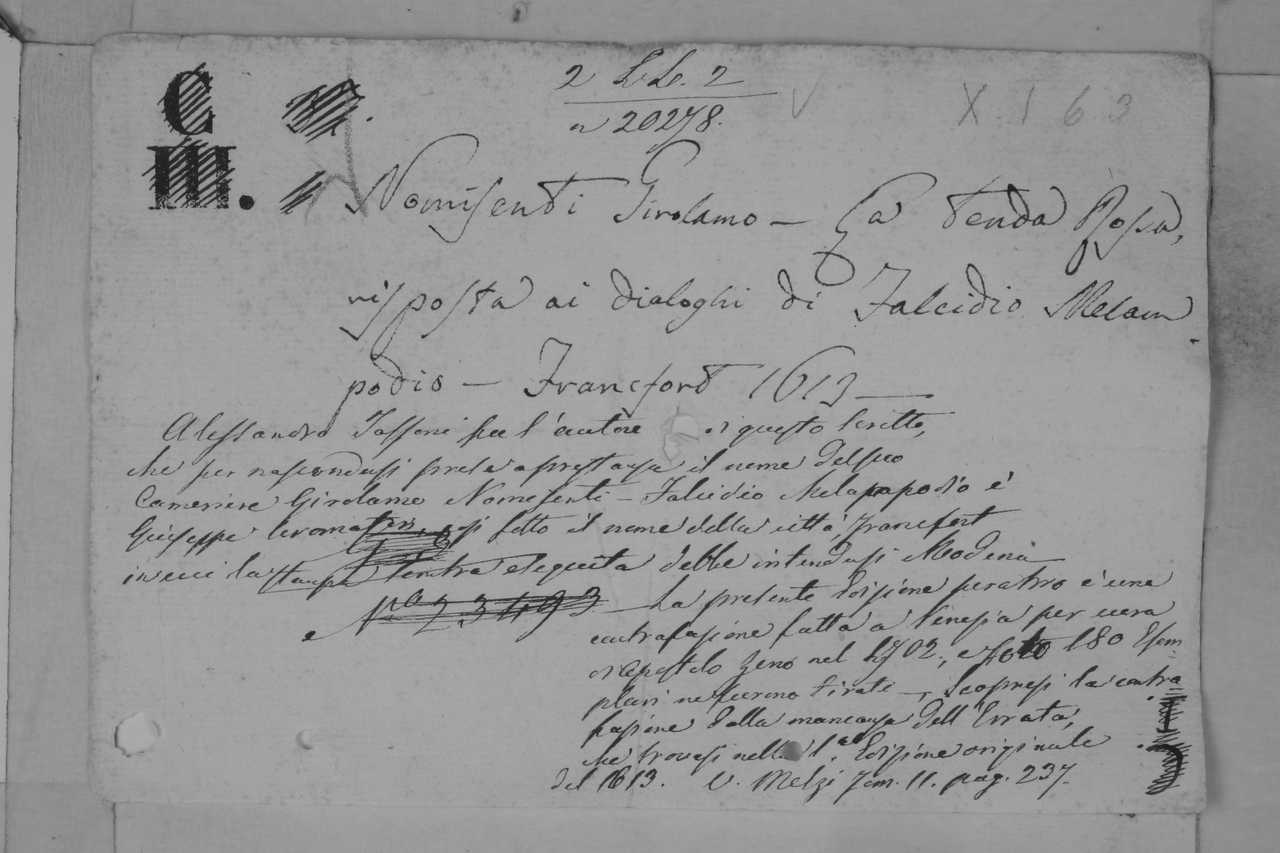 2 LL. 2
n 20278.
X. 163
C
III.
Nomisenti Girolamo – La Tenda Rossa,
risposta ai dialoghi di Falcidio Melam
podio – Francfort 1613 –
Alessandro Tassoni fu l'autore di questo scritto,
che per nascondersi prese a prestanza il nome del suo
Cameriere Girolamo Nomesenti – Falcidio Melapapodio è
Giuseppe Aromatari, sotto il nome della città, Francfort
in cui la stampa sembra eseguita debbe intendersi Modena
Nº 23493
La presente Edizione peraltro è una
contrafasione fatta a Venezia per cura
di Apostolo Zeno nel 1702, e soto 180 Esem
plari ne furono tirati –, Scopresi la contra
fasione dalla mancanza dell'Errata,
che trovasi nella 1.a Edizione originale
del 1613. V. Melzi Tom. 11. pag. 237.